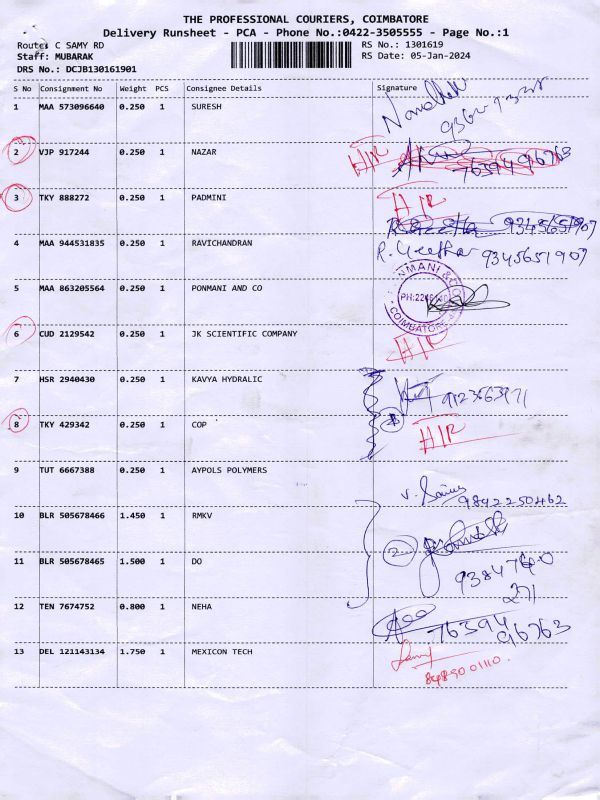 THE PROFESSIONAL COURIERS, COIMBATORE
Delivery Runsheet - PCA - Phone No.:0422-3505555 - Page No.:1
Route: C SAMY RD RS No.: 1301619
Staff: MUBARAK RS Date: 05-Jan-2024
DRS No.: DCJB130161901
S No Consignment No Weight PCS Consignee Details Signature
1 MAA 573096640 0.250 1 SURESH
2 VJP 917244 0.250 1 NAZAR H/R 7639496763
3 TKY 888272 0.250 1 PADMINI H/R
R. Geetha 9345651907
4 MAA 944531835 0.250 1 RAVICHANDRAN R. Geetha 9345651907
5 MAA 863205564 0.250 1 PONMANI AND CO
COIMBATORE
6 CUD 2129542 0.250 1 JK SCIENTIFIC COMPANY H/R
7 HSR 2940430 0.250 1 KAVYA HYDRALIC
8 TKY 429342 0.250 1 COP H/R
9 TUT 6667388 0.250 1 AYPOLS POLYMERS 9842250462
10 BLR 505678466 1.450 1 RMKV
2
11 BLR 505678465 1.500 1 DO 9384760
271
12 TEN 7674752 0.800 1 NEHA 7639496763
13 DEL 121143134 1.750 1 MEXICON TECH
8489001110.